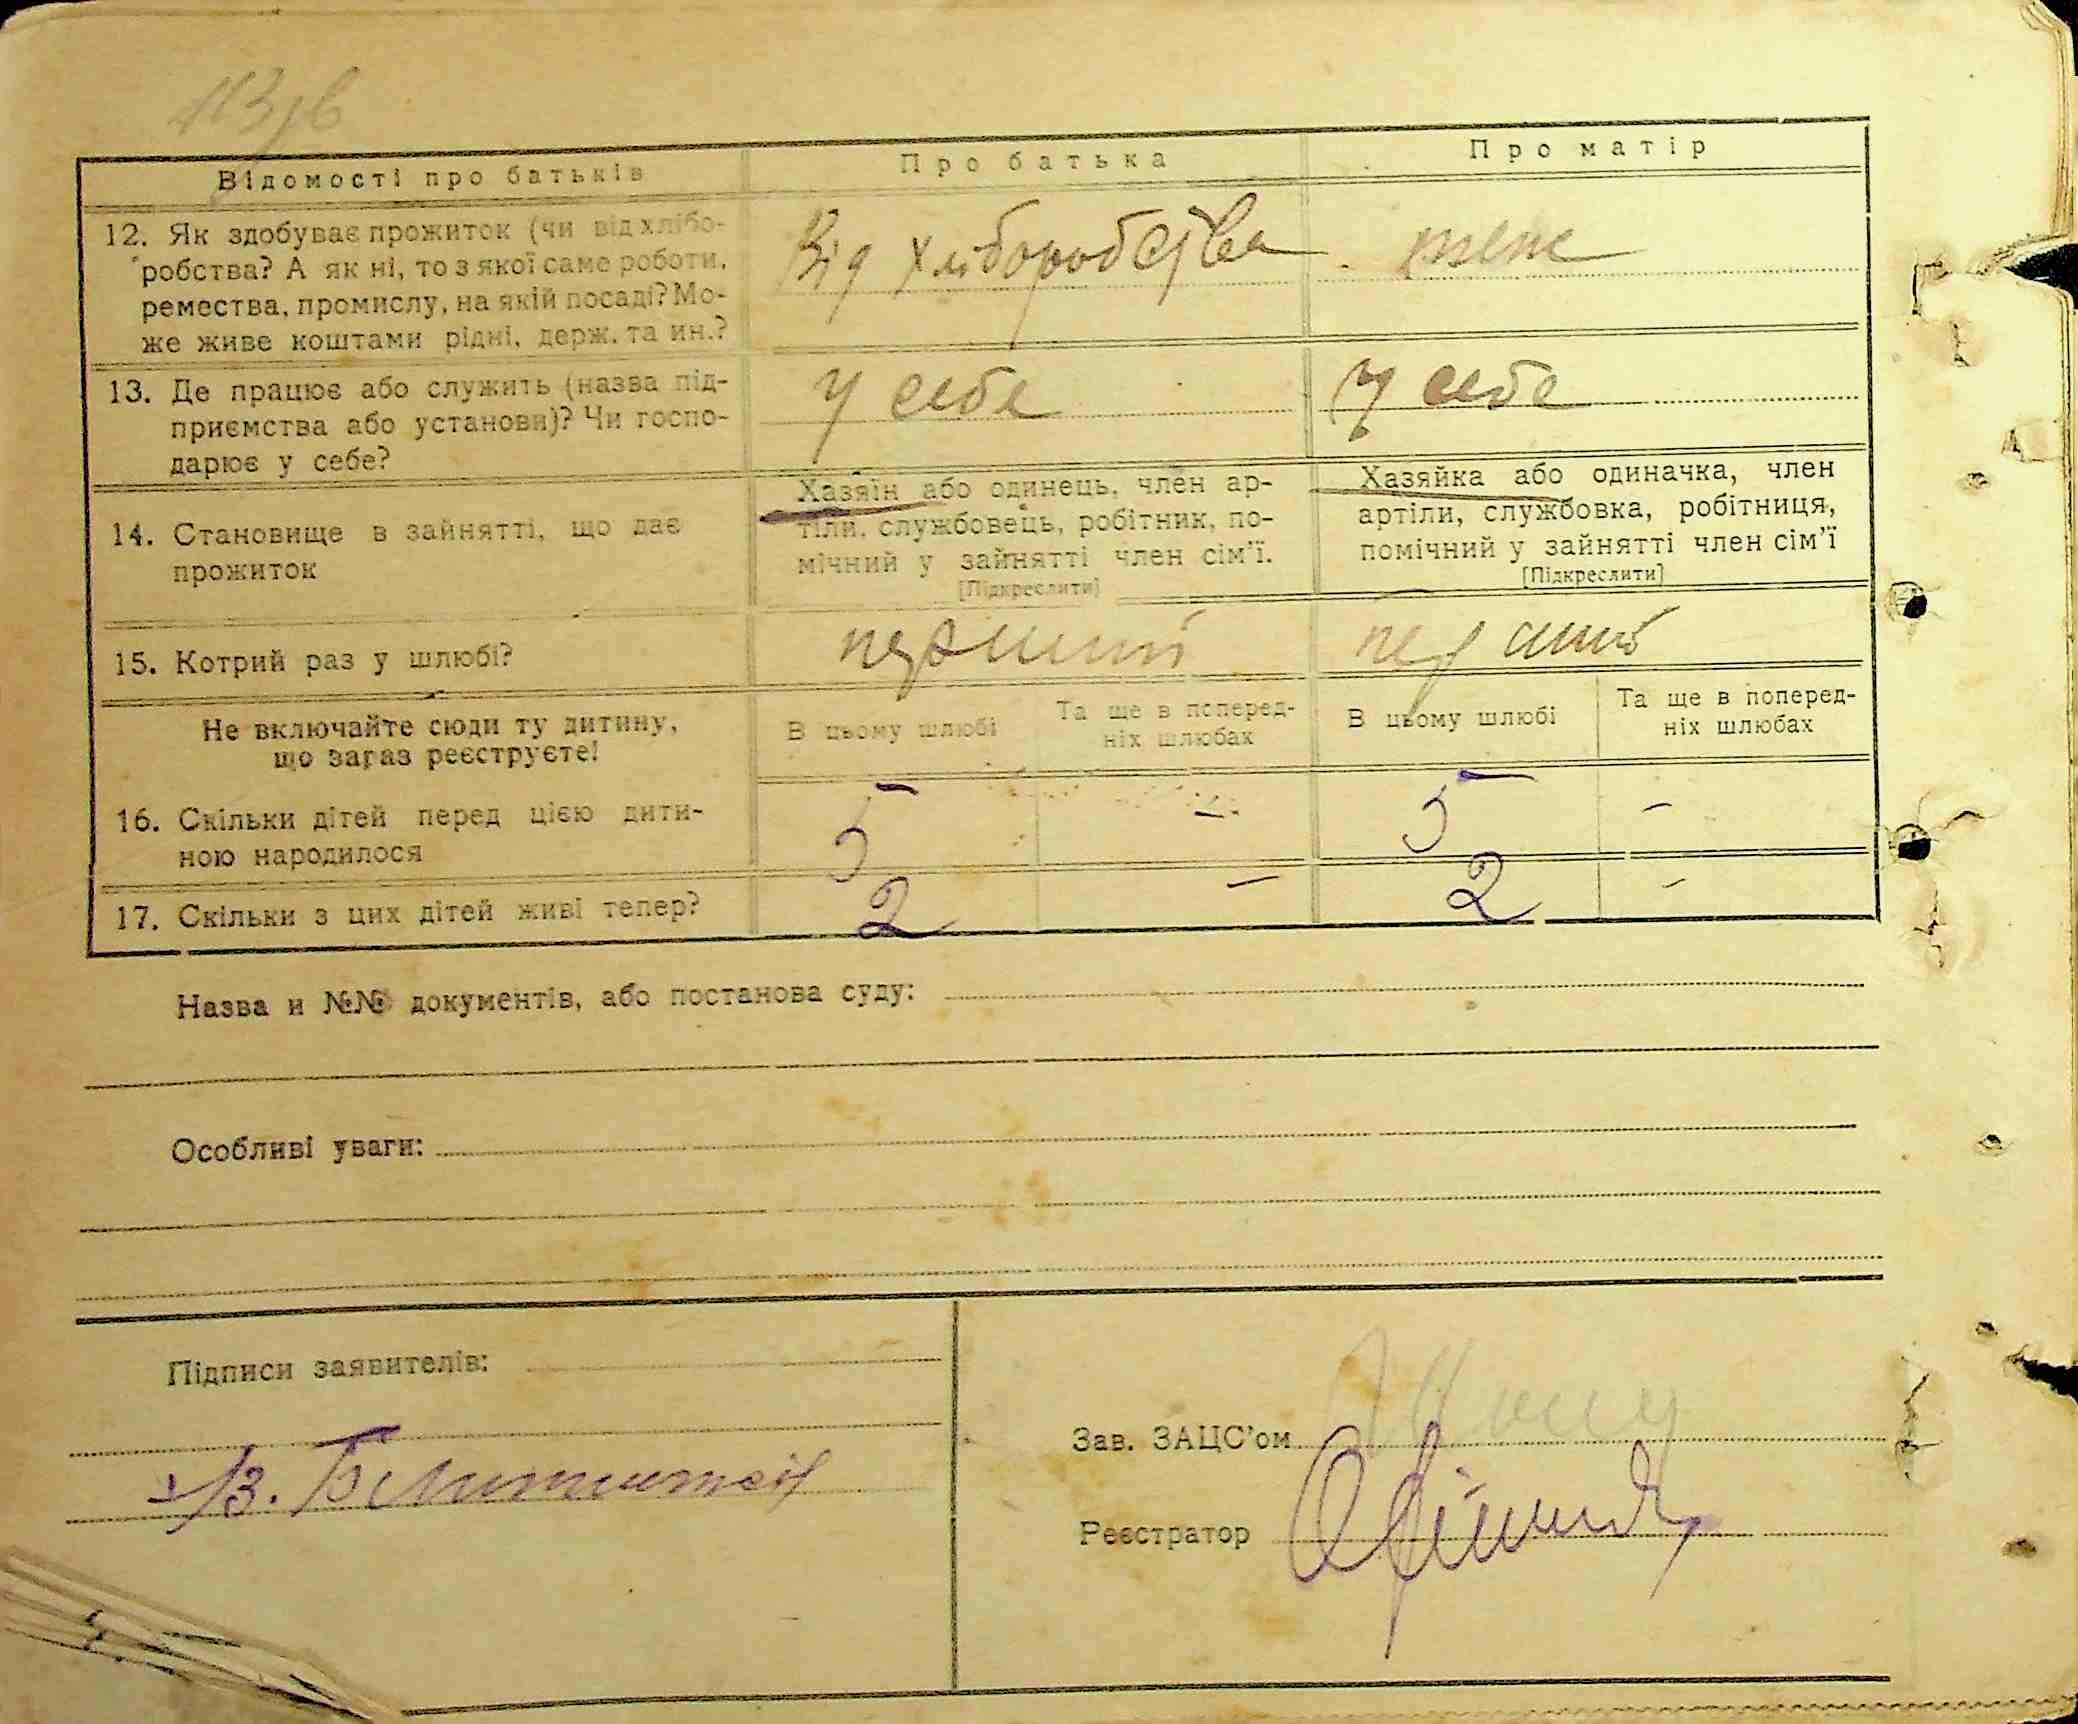 113зв
Відомості про батьків
Про батька
Про матір
12. Як здобуває прожиток (чи від хлібо-
робства? А як ні, то з якої саме роботи,
ремества, промислу, на якій посаді? Мо-
же живе коштами рідні, держ. та ин.?
Від хліборобства
теж
13. Де працює або служить (назва під-
приємства або установи)? Чи госпо-
дарює у себе?
у себе
у себе
14. Становище в зайнятті, що дає
прожиток
Хазяїн або одинець, член ар-
тіли, службовець, робітник, по-
мічний у зайнятті член сім'ї.
[Підкреслити]
Хазяйка або одиначка, член
артіли, службовка, робітниця,
помічний у зайнятті член сім'ї
[Підкреслити]
15. Котрий раз у шлюбі?
перший
перший
Не включайте сюди ту дитину,
що зараз реєструєте!
В цьому шлюбі
Та ще в поперед-
ніх шлюбах
В цьому шлюбі
Та ще в поперед-
ніх шлюбах
16. Скільки дітей перед цією дити-
ною народилося
5 – 5 –
17. Скільки з цих дітей живі тепер?
2 – 2 –
Назва и №№ документів, або постанова суду:
Особливі уваги:
Підписи заявителів:
Зав. ЗАЦС'ом
Реєстратор